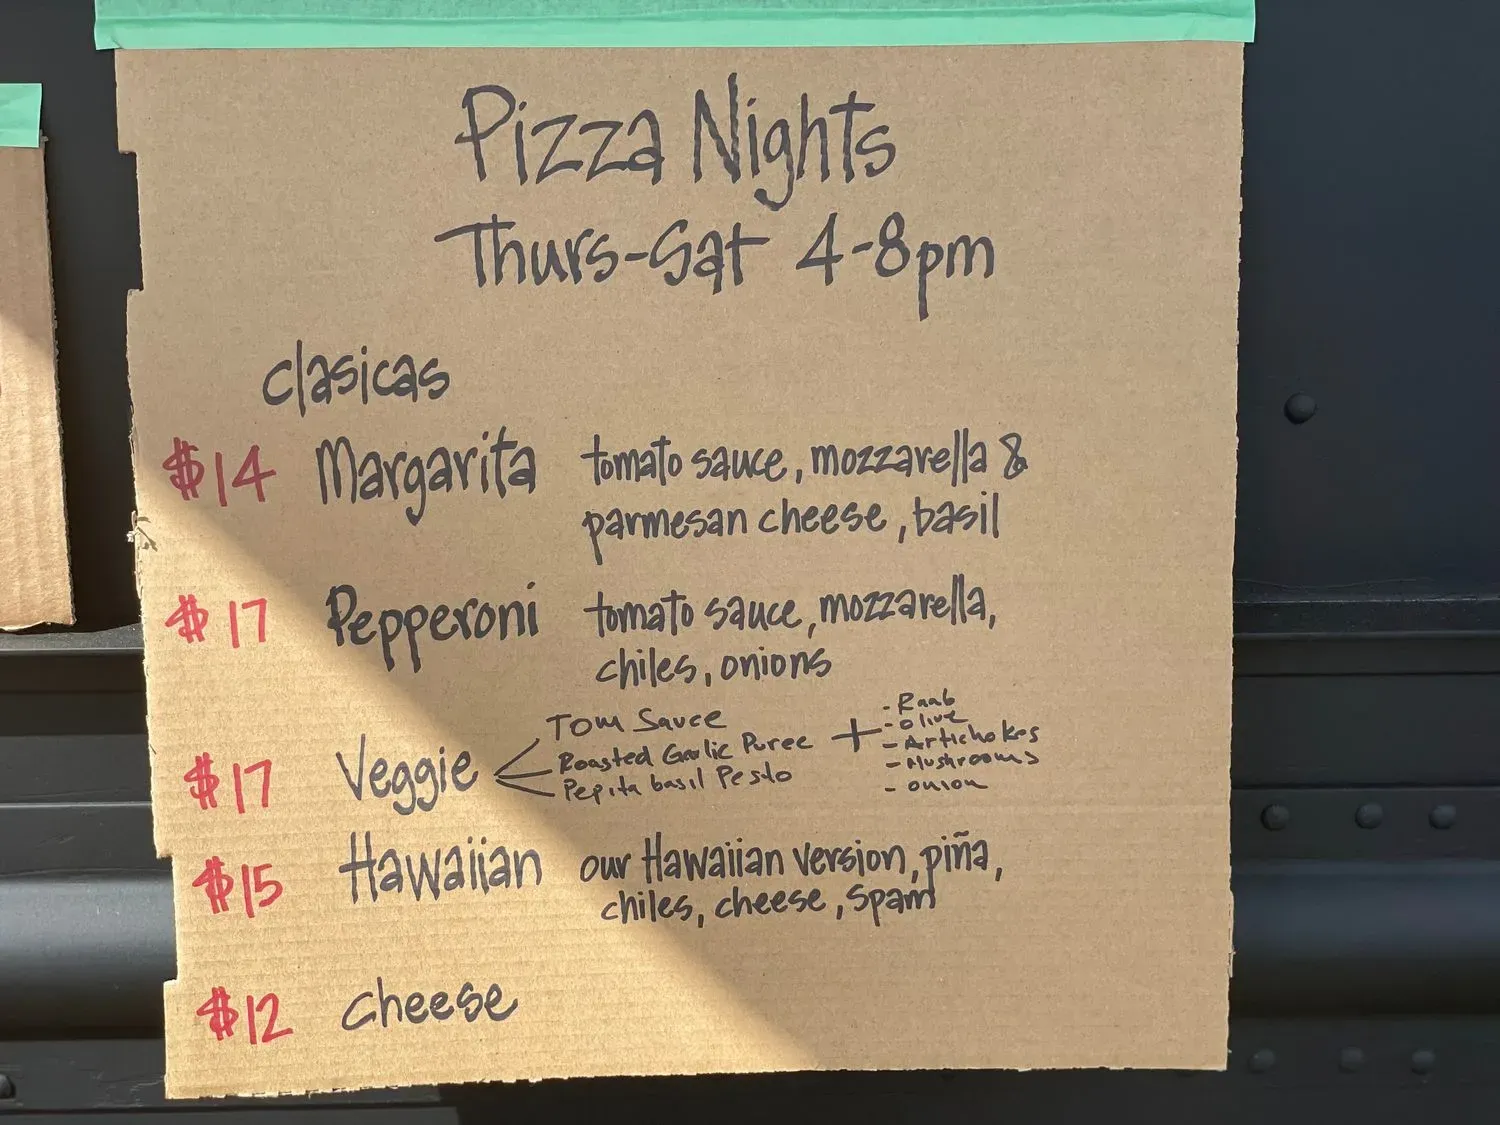 Pizza Nights
Thurs-Sat 4-8pm
clasicas
$14 Margarita tomato sauce, mozzarella &
parmesan cheese, basil
$17 Pepperoni tomato sauce, mozzarella,
chiles, onions
$17 Veggie
Tom Sauce
Roasted Garlic Puree
Pepita basil Pesto
+
- Raab
- Olive
- Artichokes
- Mushrooms
- onion
$15 Hawaiian our Hawaiian version, piña,
chiles, cheese, spam
$12 cheese